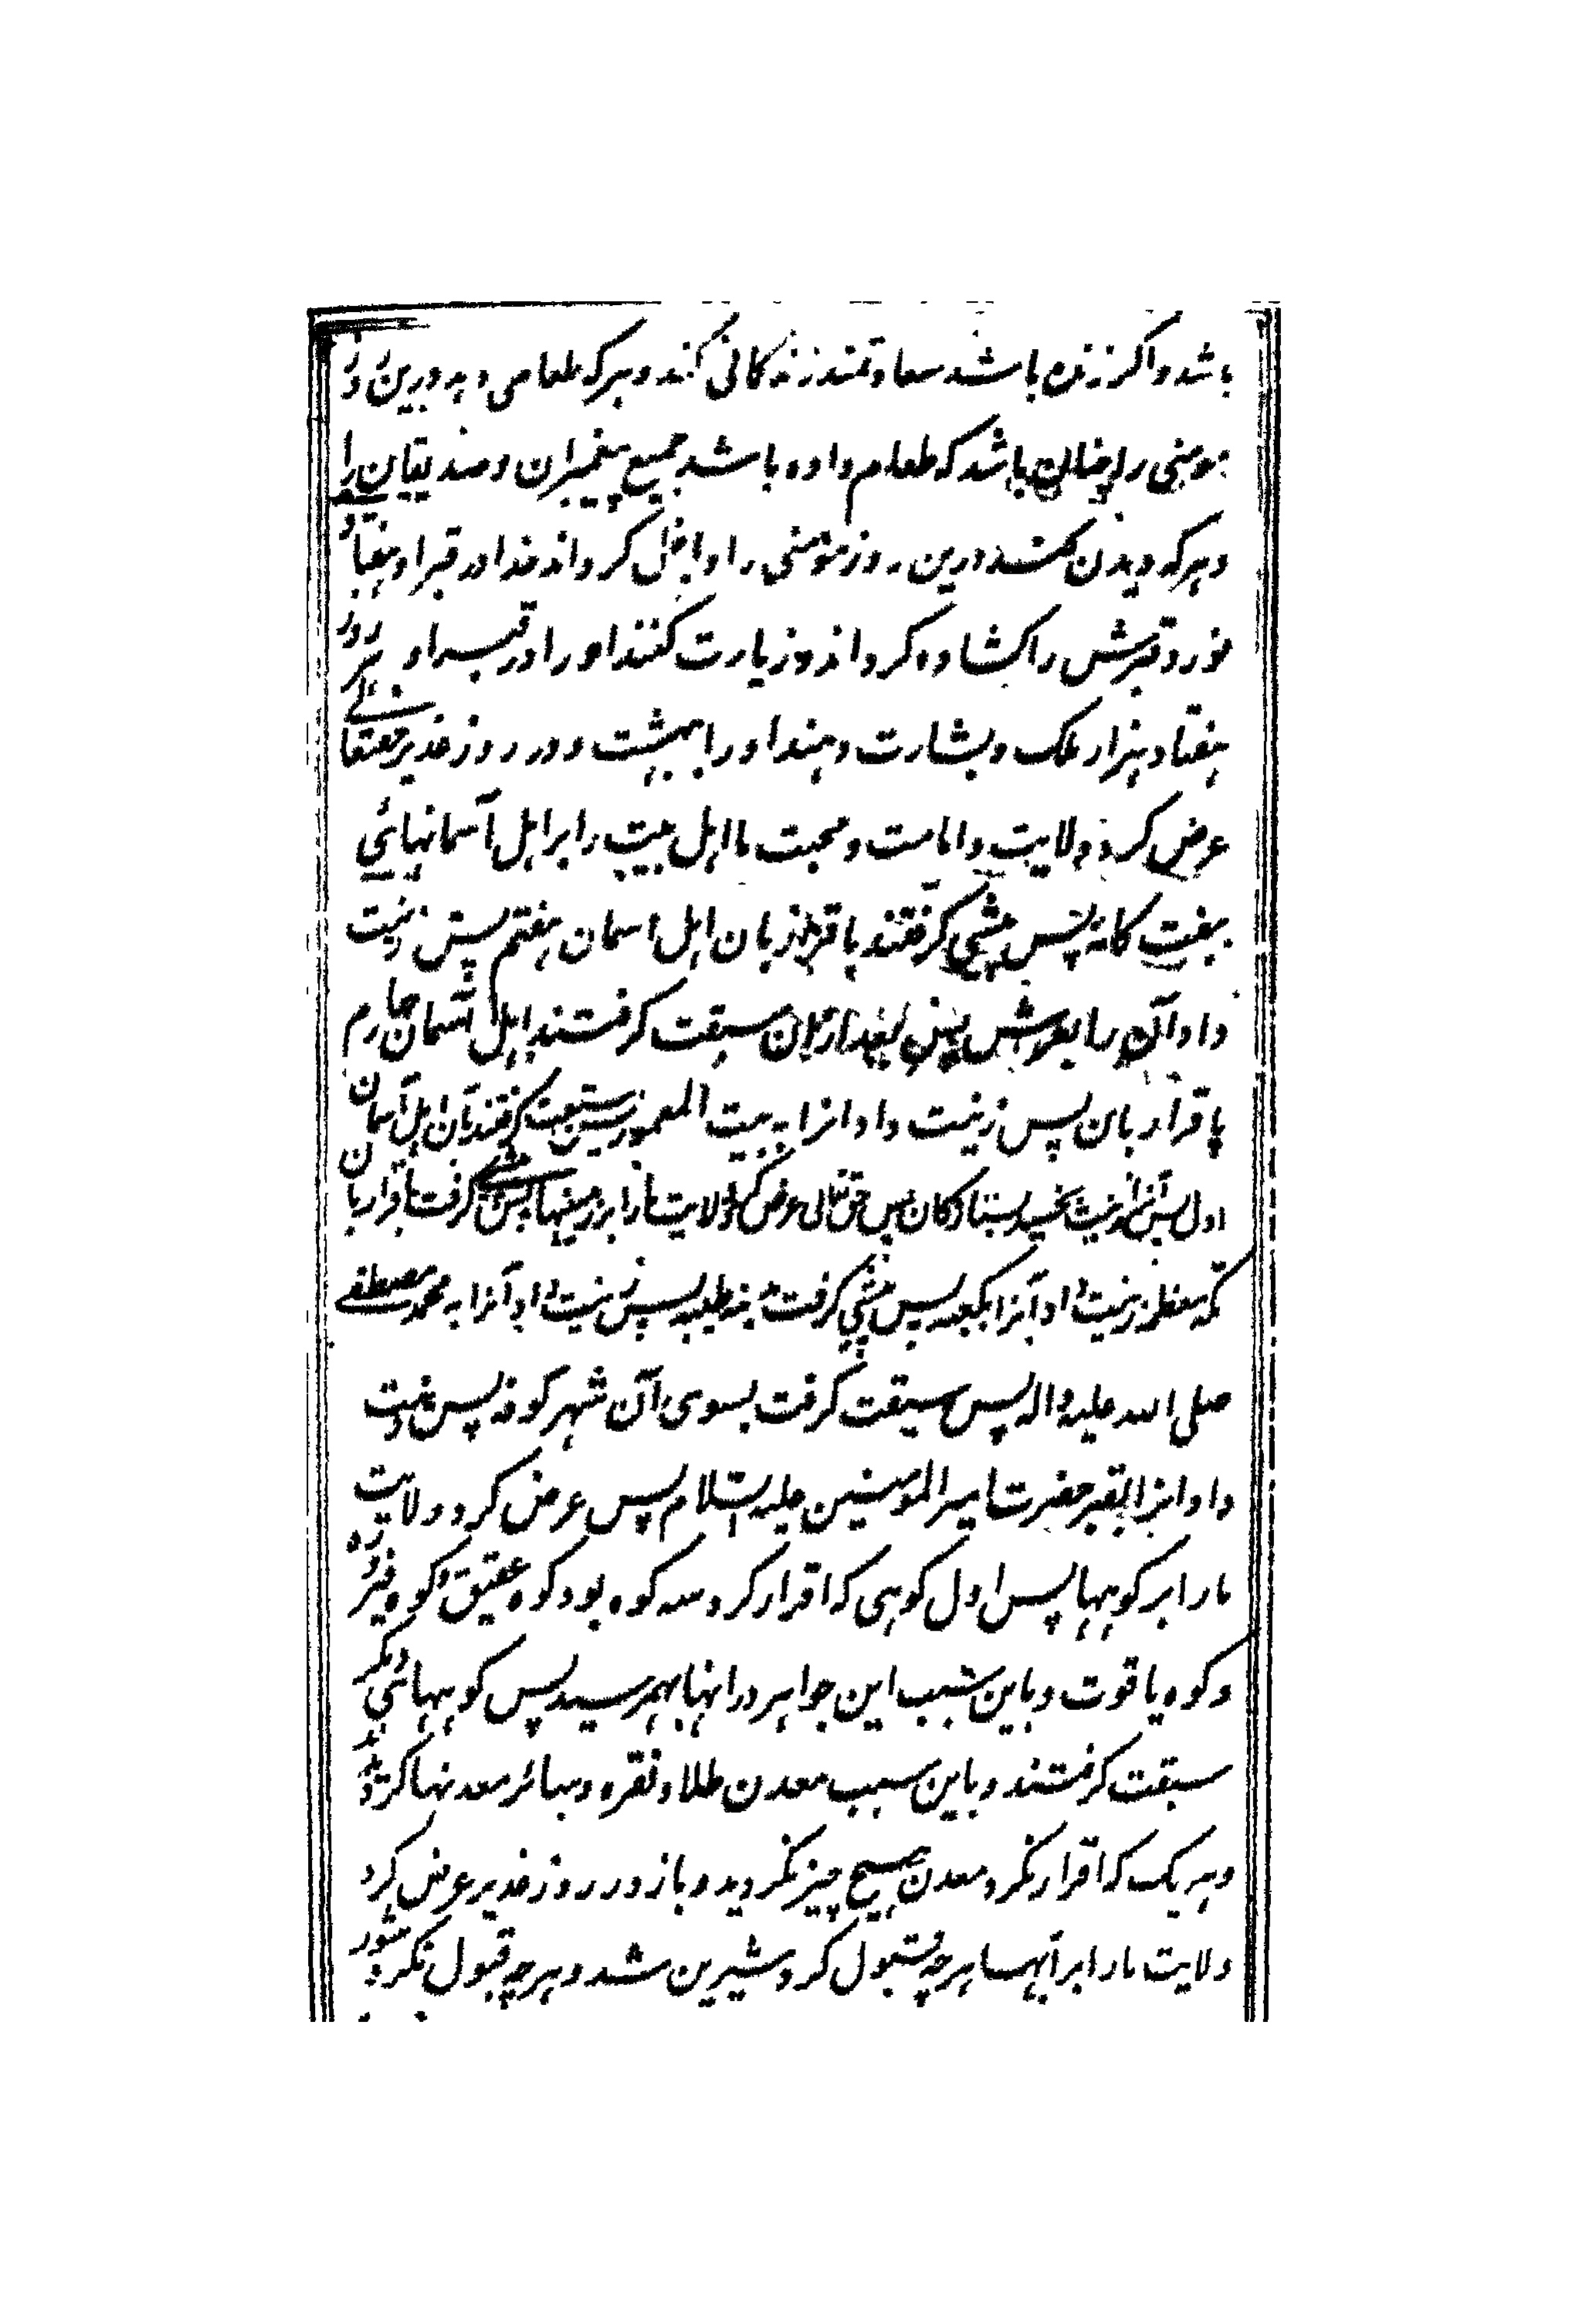 باشد و اگر زنده باشد سعادتمند زندگانی کند و هر که طعامی دهد درین روز
مومنی را چنان باشد که طعام داده باشد جمیع پیغمبران و صدیقان را
و هر که دیدن کند درین روز مؤمنی را داخل گرداند خدا در قبر او هفتاد
نور و قبرش را کشاده گرداند و زیارت کنند او را در قبر او هر روز
هفتاد هزار ملک و بشارت دهند او را بهشت و در روز غدیر حقتعالی
عرض کرد ولایت و امامت و محبت ما اهل بیت را بر اهل آسمانهائی
هفت گانه پس پیشی گرفتند باقرار بان اهل اسمان هفتم پس زینت
داد آن را بعرش پس بعد از آن سبقت گرفتند اهل آسمان چهارم
باقرار بان پس زینت داد انرا به بیت المعمور پس سبقت گرفتند بآن اهل آسمان
اول پس آنرا زینت بخشید بستارگان پس حق تعالی عرض کرد ولایت ما را بر زمینها پس پیشی گرفت باقرار بان
مکه معظمه زینت داد آنرا بکعبه پس پیشی گرفت مدینه طیبه پس زینت داد آنرا به محمد مصطفی
صلی الله علیه واله پس سبقت گرفت بسوی آن شهر کوفه پس زینت
داد انرا بقبر حضرت امیر المومنین علیه السلام پس عرض کرد ولایت
ما را بر کوهها پس اول کوهی که اقرار کرد سه کوه بود کوه عقیق و کوه فیروزه
و کوه یاقوت و باین سبب این جواهر در انها بهمرسید پس کوههائی دیگر
سبقت گرفتند و باین سبب معدن طلا و نقره و سائر معدنها گردیدند
و هر یک که اقرار نکرد معدن هیچ چیز نگردید و باز در روز غدیر عرض کرد
ولایت ما را بر آبها هر چه قبول کرد شیرین شد و هر چه قبول نکرد شور